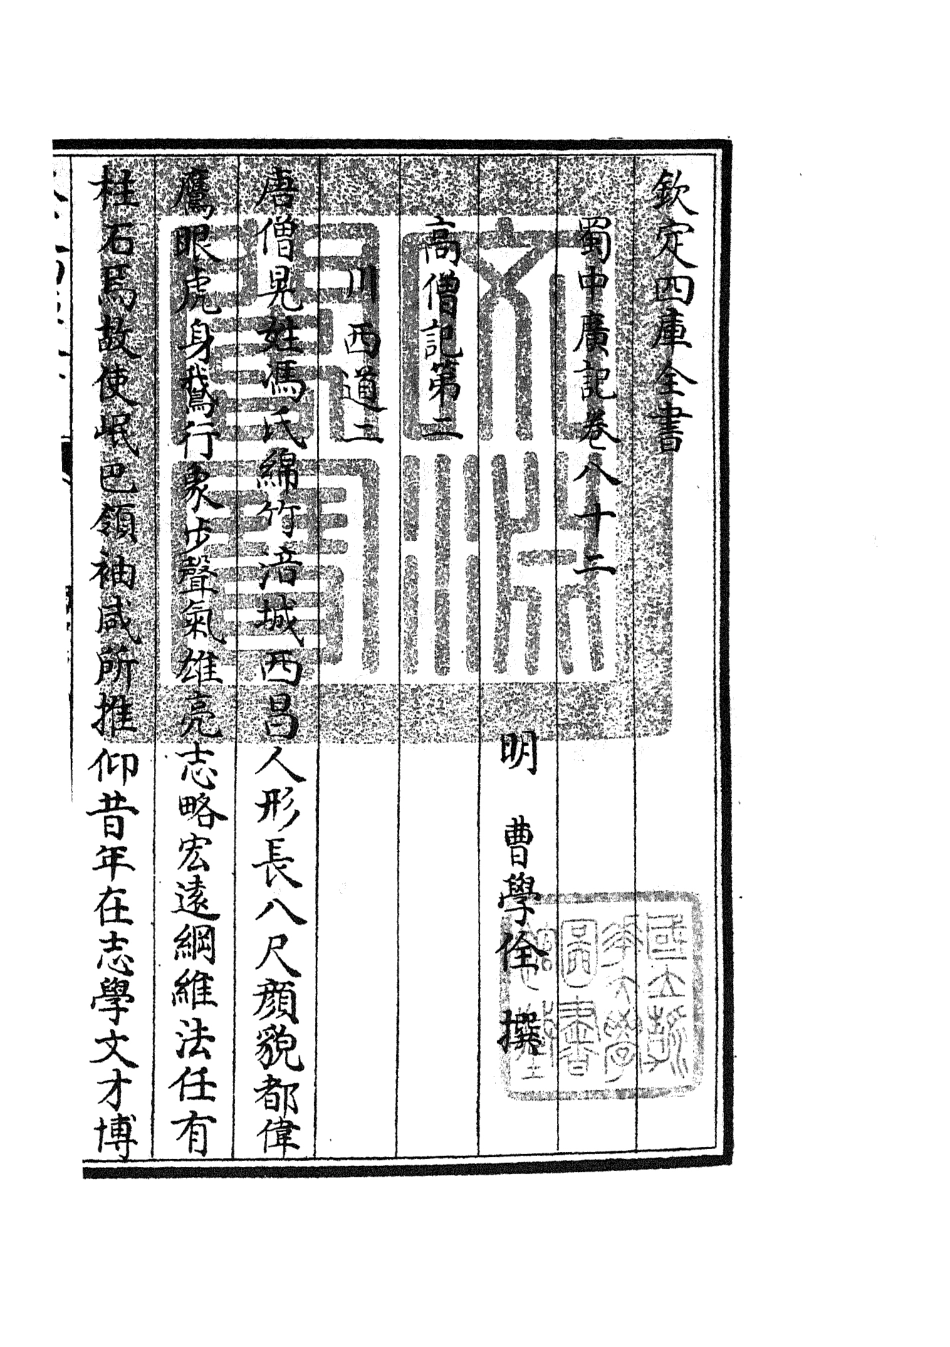 欽定四庫全書
蜀中廣記卷八十二
明 曹學佺 撰
高僧記第二
川西道二
唐僧晃姓馮氏綿竹涪城西昌人形長八尺顔貌都偉
鷹眼虎身鵞行象步聲氣雄亮志略宏遠綱維法任有
柱石焉故使岷巴領袖咸所推仰昔年在志學文才博